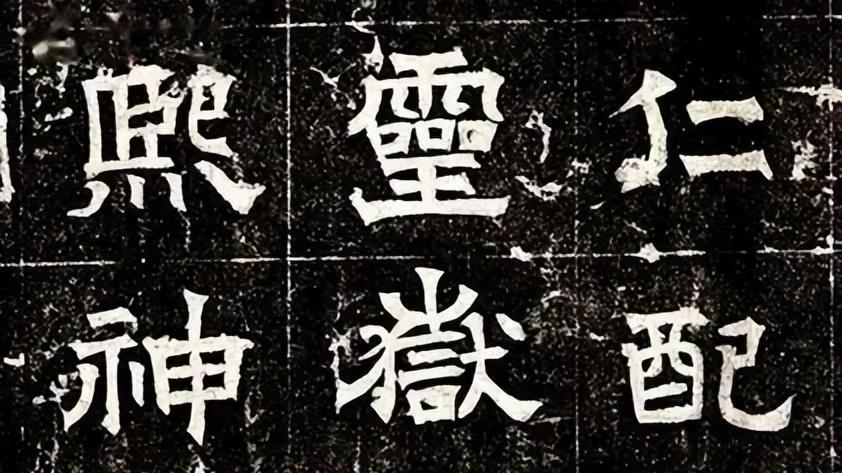 仁配
靈嶽
熙神